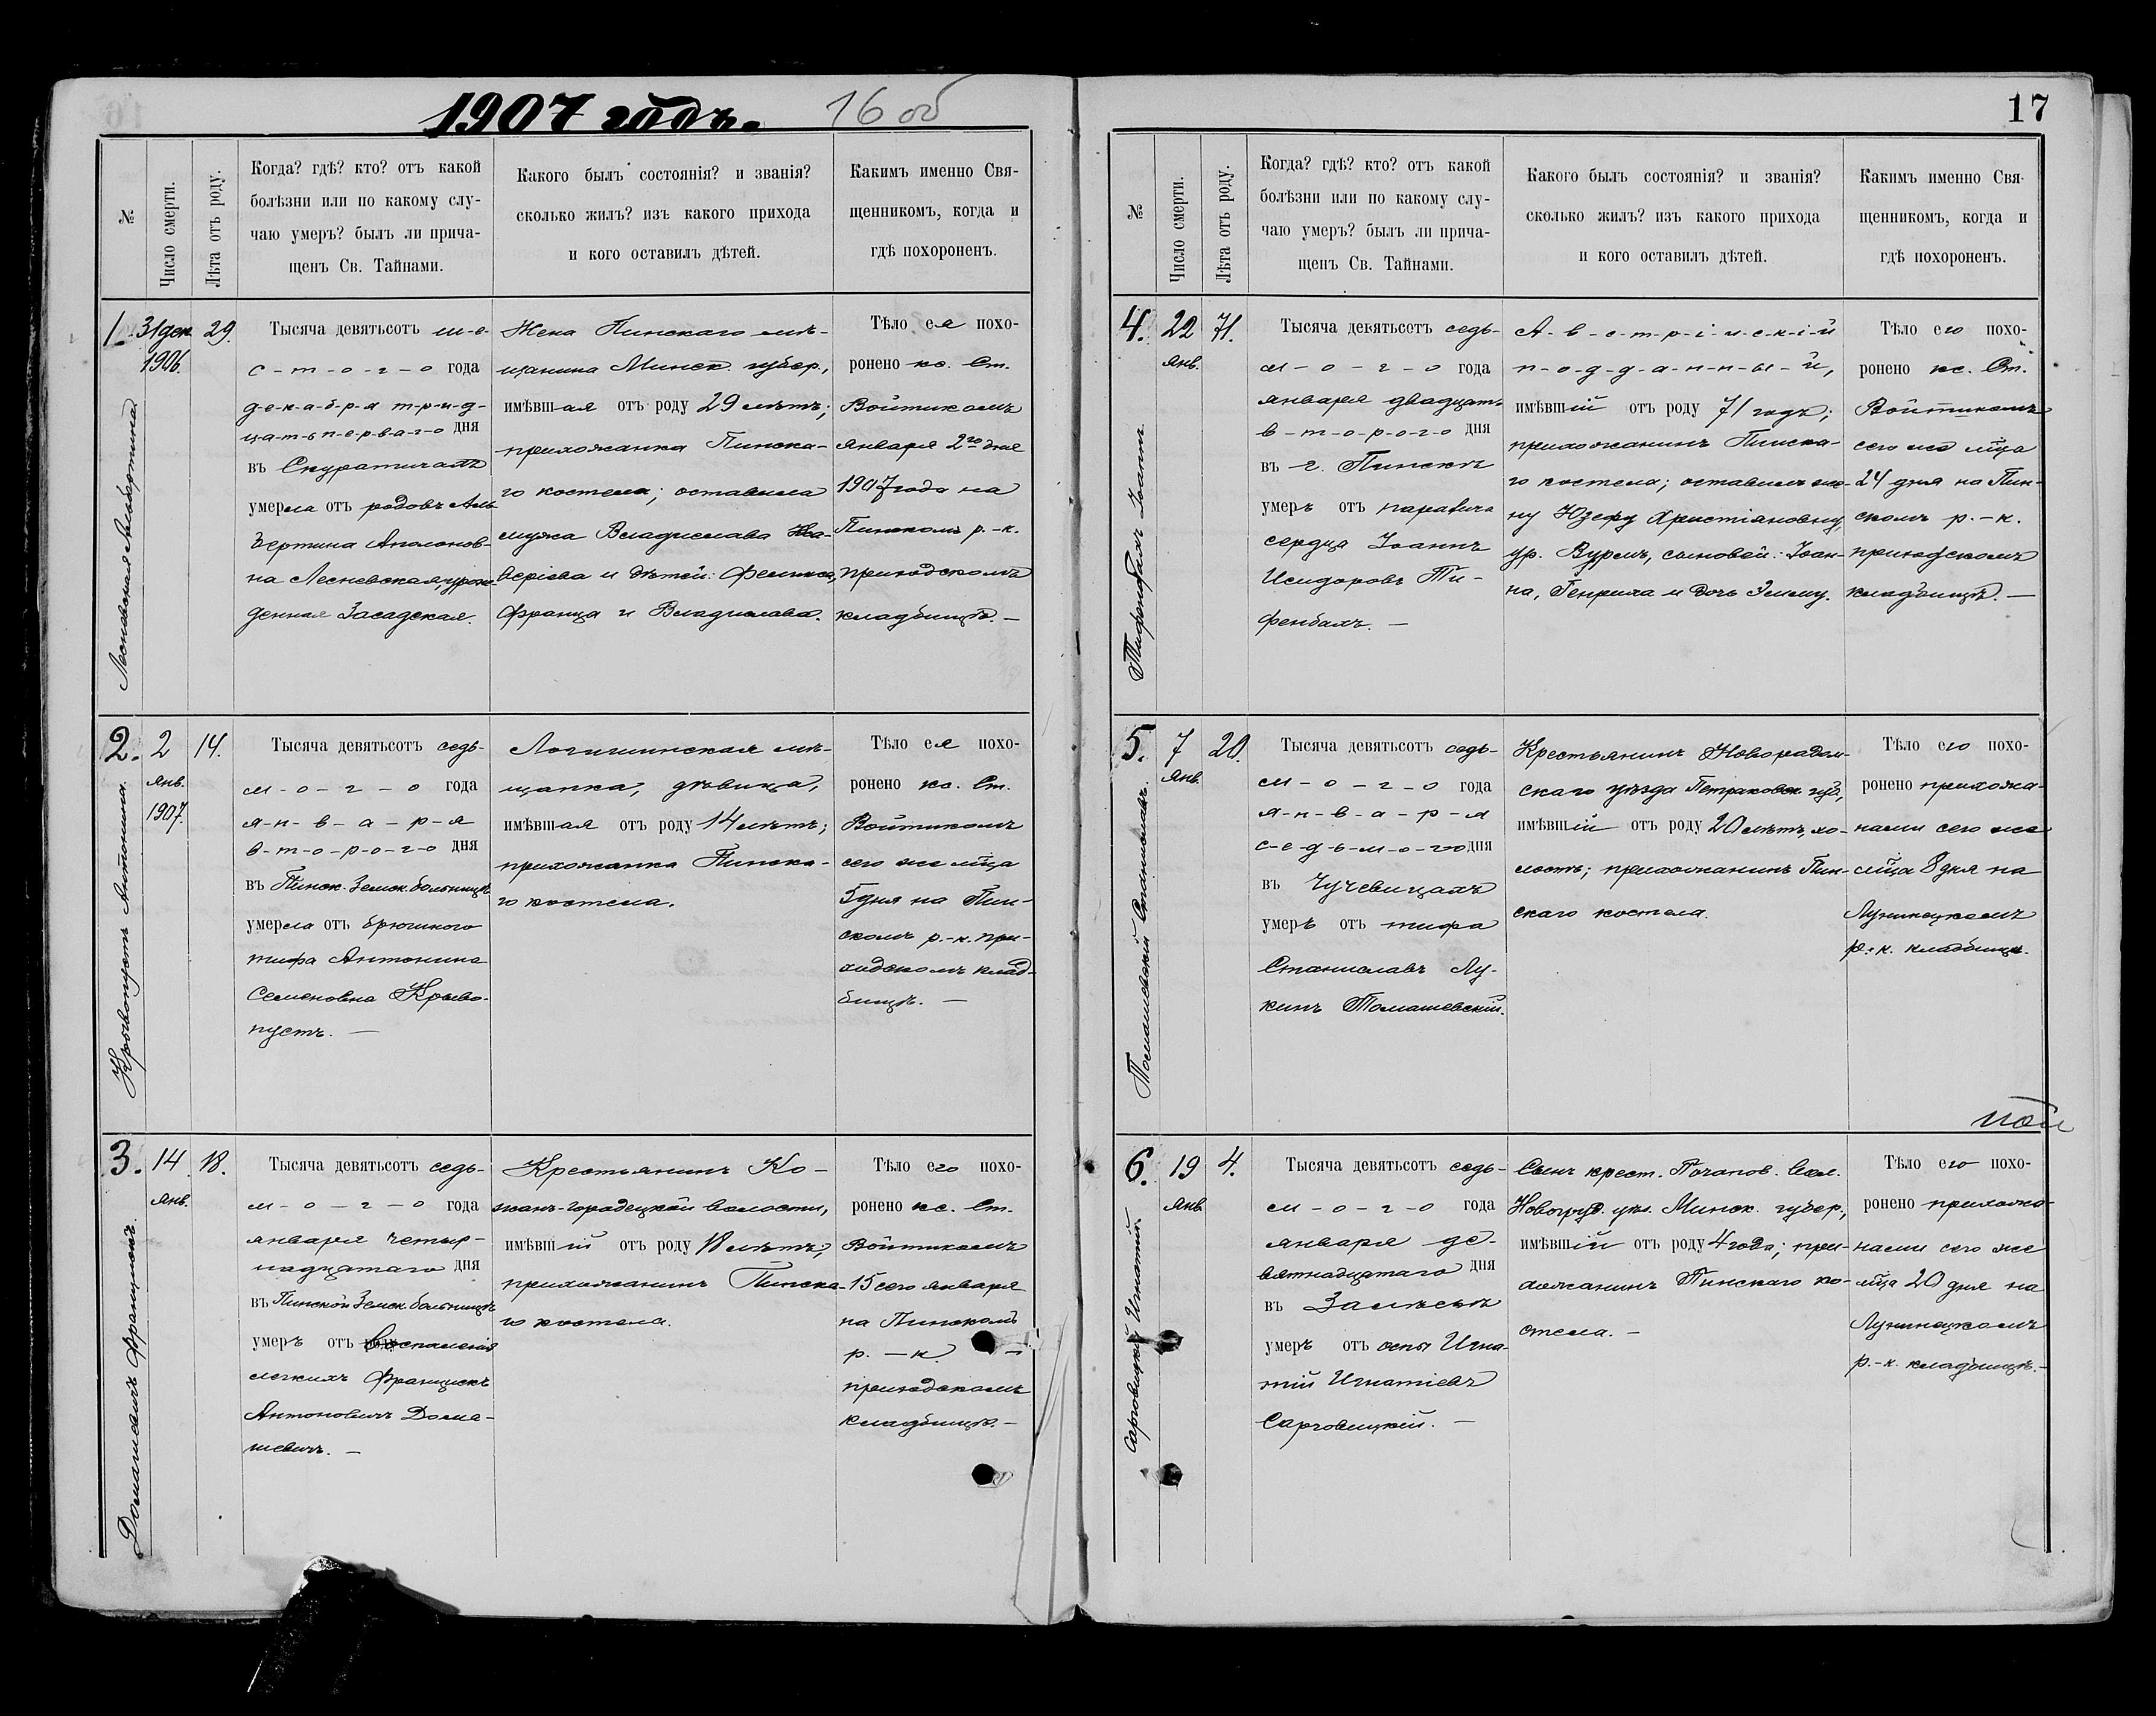 1907 годъ.
16 об
№
Число смерти.
Лѣта отъ роду.
Когда? гдѣ? кто? отъ какой
болѣзни или по какому слу-
чаю умеръ? былъ ли прича-
щенъ Св. Тайнами.
Какого былъ состоянія? и званія?
сколько жилъ? изъ какого прихода
и кого оставилъ дѣтей.
Какимъ именно Свя-
щенникомъ, когда и
гдѣ похороненъ.
1.
31 дек.
1906.
29.
Альбертина
Тысяча девятьсотъ ш-е-
с-т-о-г-о года
д-е-к-а-б-р-я т-р-и-д-
ц-а-т-ь п-е-р-в-а-г-о дня
въ Скуратичахъ
умерла отъ родовъ Аль-
бертина Аполонов-
на Лесневская, урож-
денная Засадская.
Жена Пинскаго мѣ-
щанина Минск. губер.,
имѣвшая отъ роду 29 лѣтъ;
прихожанка Пинска-
го костела; оставила
мужа Владислава Кса-
веріева и дѣтей: Феликса,
Франца и Владислава.
Тѣло ея похо-
ронено кс. Ст.
Войтикомъ
января 2го дня
1907 года на
Пинскомъ р.-к.
приходскомъ
кладбищѣ. —
2.
2
янв.
1907.
14.
Крывопустъ Антонина.
Тысяча девятьсотъ седь-
м-о-г-о года
я-н-в-а-р-я
в-т-о-р-о-г-о дня
въ Пинск. Земск. больницѣ
умерла отъ брюшного
тифа Антонина
Семеновна Крыво-
пустъ. —
Логишинская мѣ-
щанка, дѣвица,
имѣвшая отъ роду 14 лѣтъ;
прихожанка Пинска-
го костела.
Тѣло ея похо-
ронено кс. Ст.
Войтикомъ
сего же м̃ца
5 дня на Пин-
скомъ р.-к. при-
ходскомъ клад-
бищѣ. —
3.
14
янв.
18.
Домашевичъ Францишекъ.
Тысяча девятьсотъ седь-
м-о-г-о года
января четыр-
надцатаго дня
въ Пинской Земск. больницѣ
умеръ отъ воспаленія
легкихъ Францискъ
Антоновичъ Дома-
шевичъ. —
Крестьянинъ Ко-
жанъ-городецкой волости,
имѣвшій отъ роду 18 лѣтъ,
прихожанинъ Пинска-
го костела.
Тѣло его похо-
ронено кс. Ст.
Войтикомъ
15 сего января
на Пинскомъ
р.-к. —
приходскомъ
кладбищѣ. —
17
№
Число смерти.
Лѣта отъ роду.
Когда? гдѣ? кто? отъ какой
болѣзни или по какому слу-
чаю умеръ? былъ ли прича-
щенъ Св. Тайнами.
Какого былъ состоянія? и званія?
сколько жилъ? изъ какого прихода
и кого оставилъ дѣтей.
Какимъ именно Свя-
щенникомъ, когда и
гдѣ похороненъ.
4.
22
янв.
71.
Тифенбахъ Іоаннъ.
Тысяча девятьсотъ седь-
м-о-г-о года
января двадцать
в-т-о-р-о-г-о дня
въ г. Пинскѣ
умеръ отъ паралича
сердца Іоаннъ
Исидоровъ Ти-
фенбахъ. —
А-в-с-т-р-і-й-с-к-і-й
п-о-д-д-а-н-н-ы-й,
имѣвшій отъ роду 71 годъ;
прихожанинъ Пинска-
го костела; оставилъ же-
ну Юзефу Христіановну,
ур. Вурмъ, сыновей: Іоан-
на, Генриха и дочь Эмму.
Тѣло его похо-
ронено кс. Ст.
Войтикомъ
сего же м̃ца
24 дня на Пин-
скомъ р.-к.
приходскомъ
кладбищѣ. —
5.
7
янв.
20.
Томашевскій Станиславъ.
Тысяча девятьсотъ седь-
м-о-г-о года
я-н-в-а-р-я
с-е-д-ь-м-о-г-о дня
въ Чучевичахъ
умеръ отъ тифа
Станиславъ Лу-
кинъ Томашевскій.
Крестьянинъ Новорадом-
скаго уѣзда Петраковск. губ.,
имѣвшій отъ роду 20 лѣтъ, хо-
лостъ; прихожанинъ Пин-
скаго костела.
Тѣло его похо-
ронено прихожа-
нами сего же
м̃ца 8 дня на
Лунинецкомъ
р.-к. кладбищѣ.
6.
19
янв.
4.
Сарговицкій Игнатій.
Тысяча девятьсотъ седь-
м-о-г-о года
января де-
вятнадцатаго дня
въ Залѣсьѣ
умеръ отъ оспы Игна-
тій Игнатіевъ
Сарговицкій. —
Сынъ крест. Почапов. Вол.
Новогруд. уѣз. Минск. губер.,
имѣвшій отъ роду 4 года; при-
хожанинъ Пинскаго ко-
стела. —
Тѣло его похо-
ронено прихожа-
нами сего же
м̃ца 20 дня на
Лунинецкомъ
р.-к. кладбищѣ. —